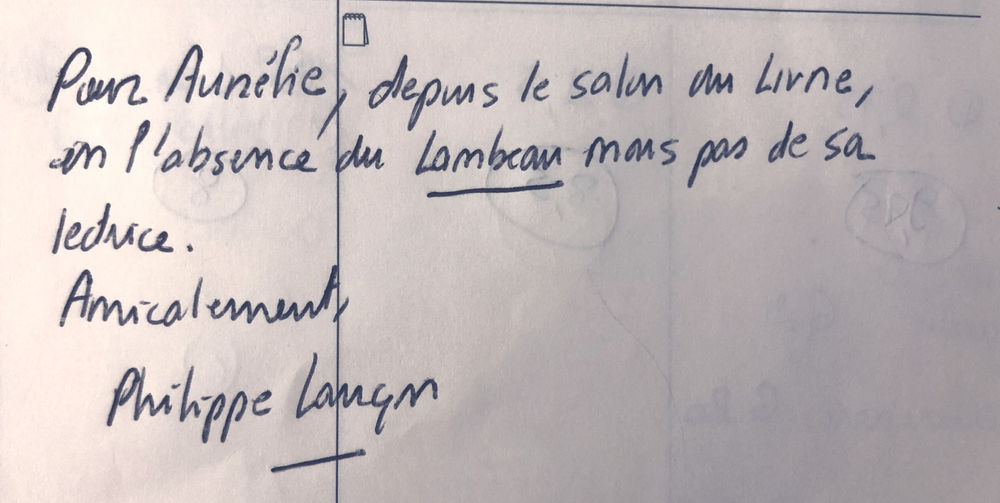 Pour Aurélie, depuis le salon du Livre,
en l'absence du Lambeau mais pas de sa
lectrice.
Amicalement,
Philippe Lançon